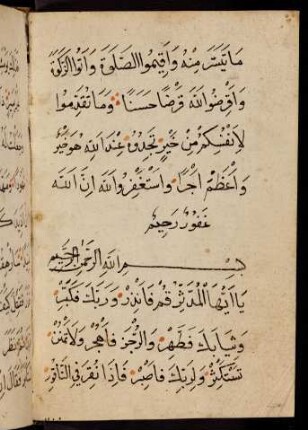 ما تيسر منه وأقيموا الصلوة وآتوا الزكوة
وأقرضوا الله قرضا حسنا وما تقدموا
لأنفسكم من خير تجدوه عند الله هو خيرا
وأعظم أجرا واستغفروا الله إن الله
غفور رحيم
بسم الله الرحمن الرحيم
يا أيها المدثر قم فأنذر وربك فكبر
وثيابك فطهر والرجز فاهجر ولا تمنن
تستكثر ولربك فاصبر فإذا نقر في الناقور